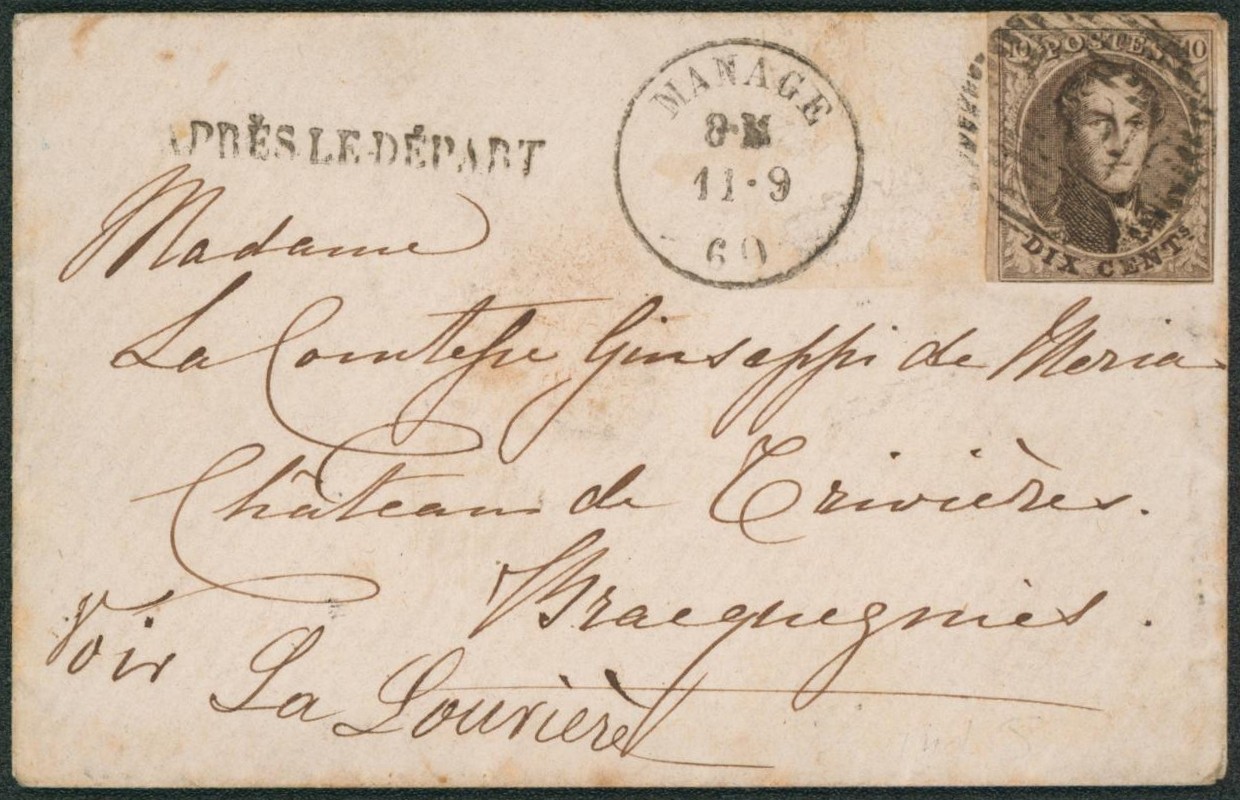 10 POSTES 10
DIX CENTS
MANAGE
8·M
11·9
60
APRÈS LE DÉPART
Madame
La Comtesse Ginseppi de Meria
Château de Trivières.
Bracquegnies.
Voir La Louvière